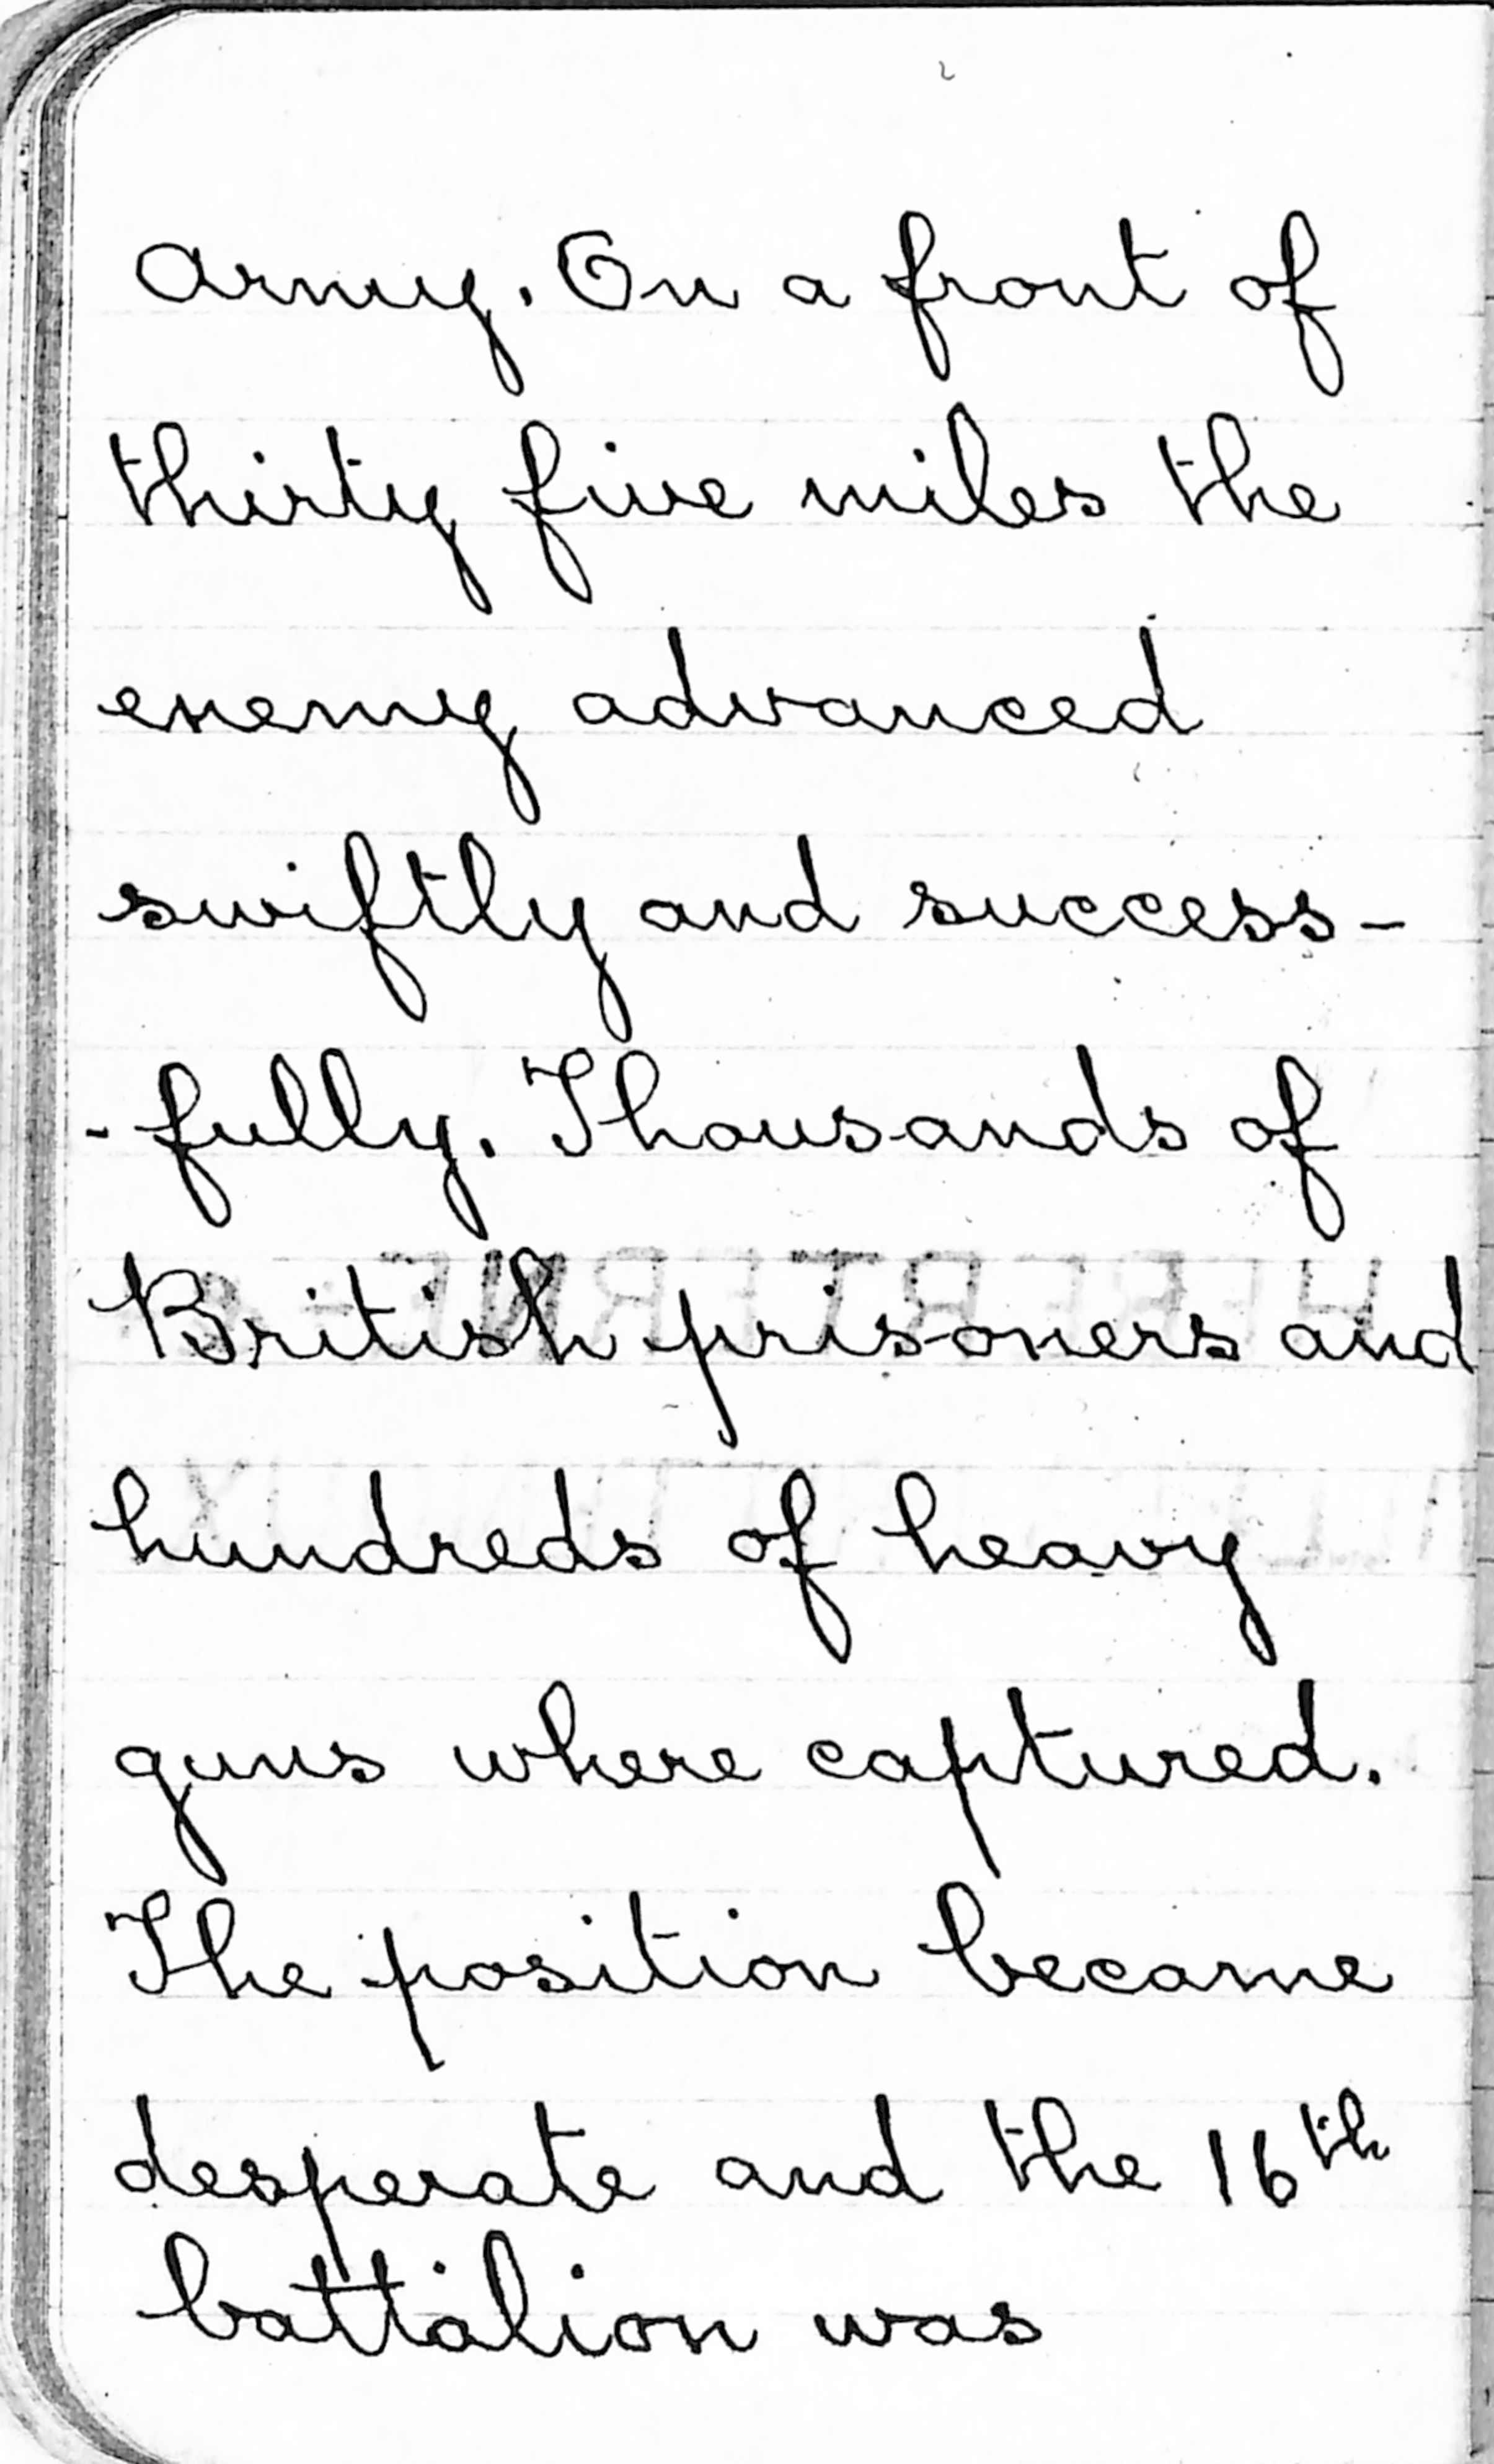 Army. On a front of
thirty five miles the
enemy advanced
swiftly and success-
-fully. Thousands of
British prisoners and
hundreds of heavy
guns where captured.
The position became
desperate and the 16th
battalion was